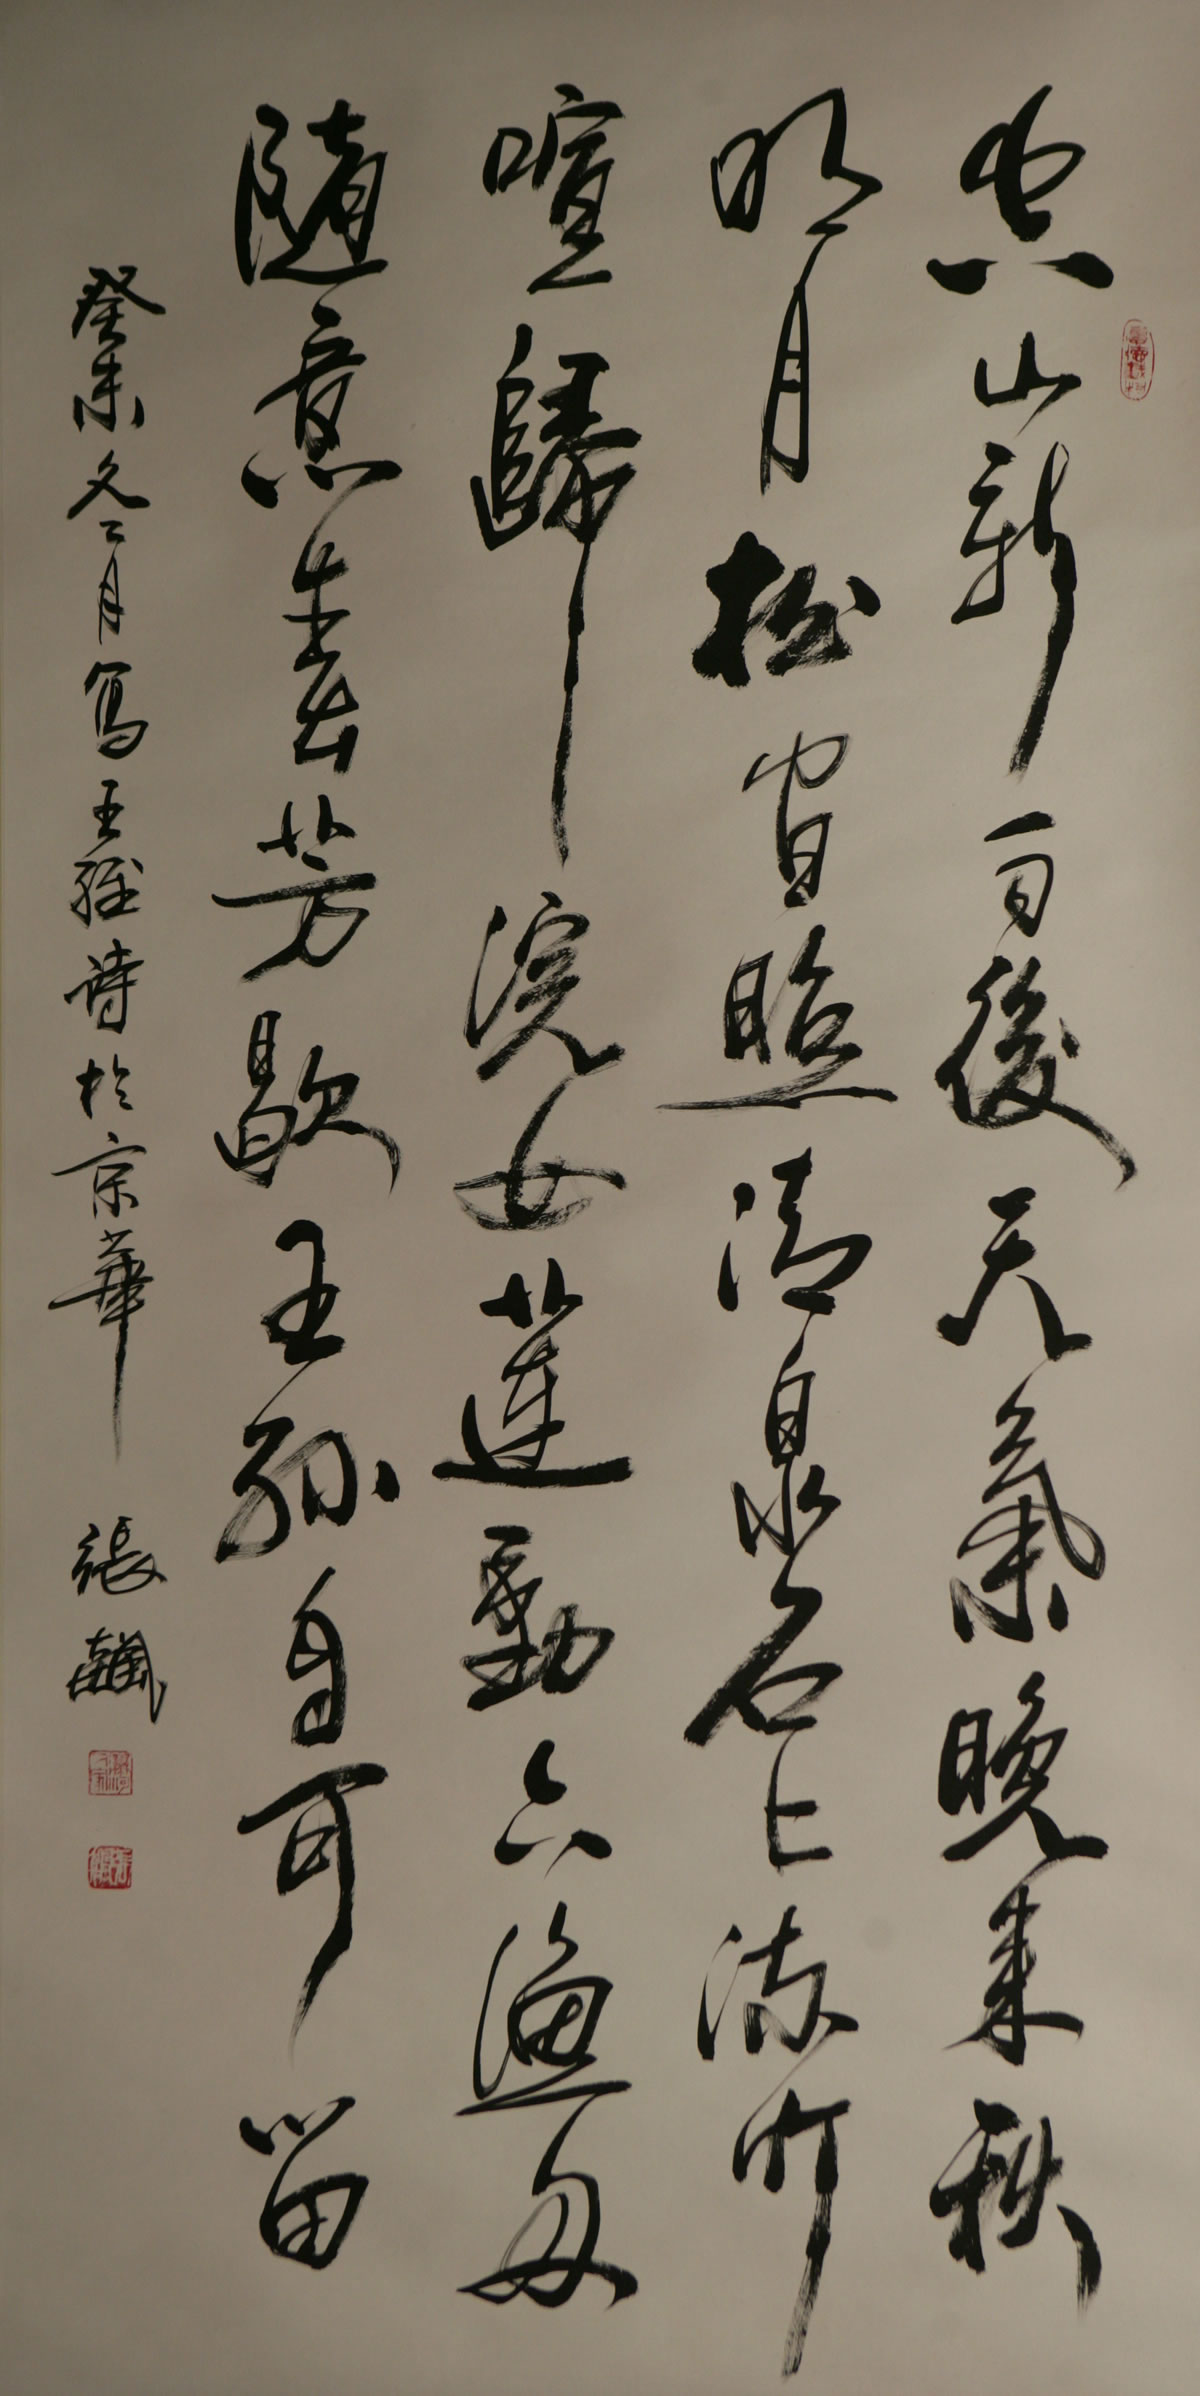 空山新雨後天氣晚来秋
明月松間照清泉石上流竹
喧歸浣女蓮動下漁舟
隨意春芳歇王孫自可留
癸未冬二月寫王維詩於京華 張